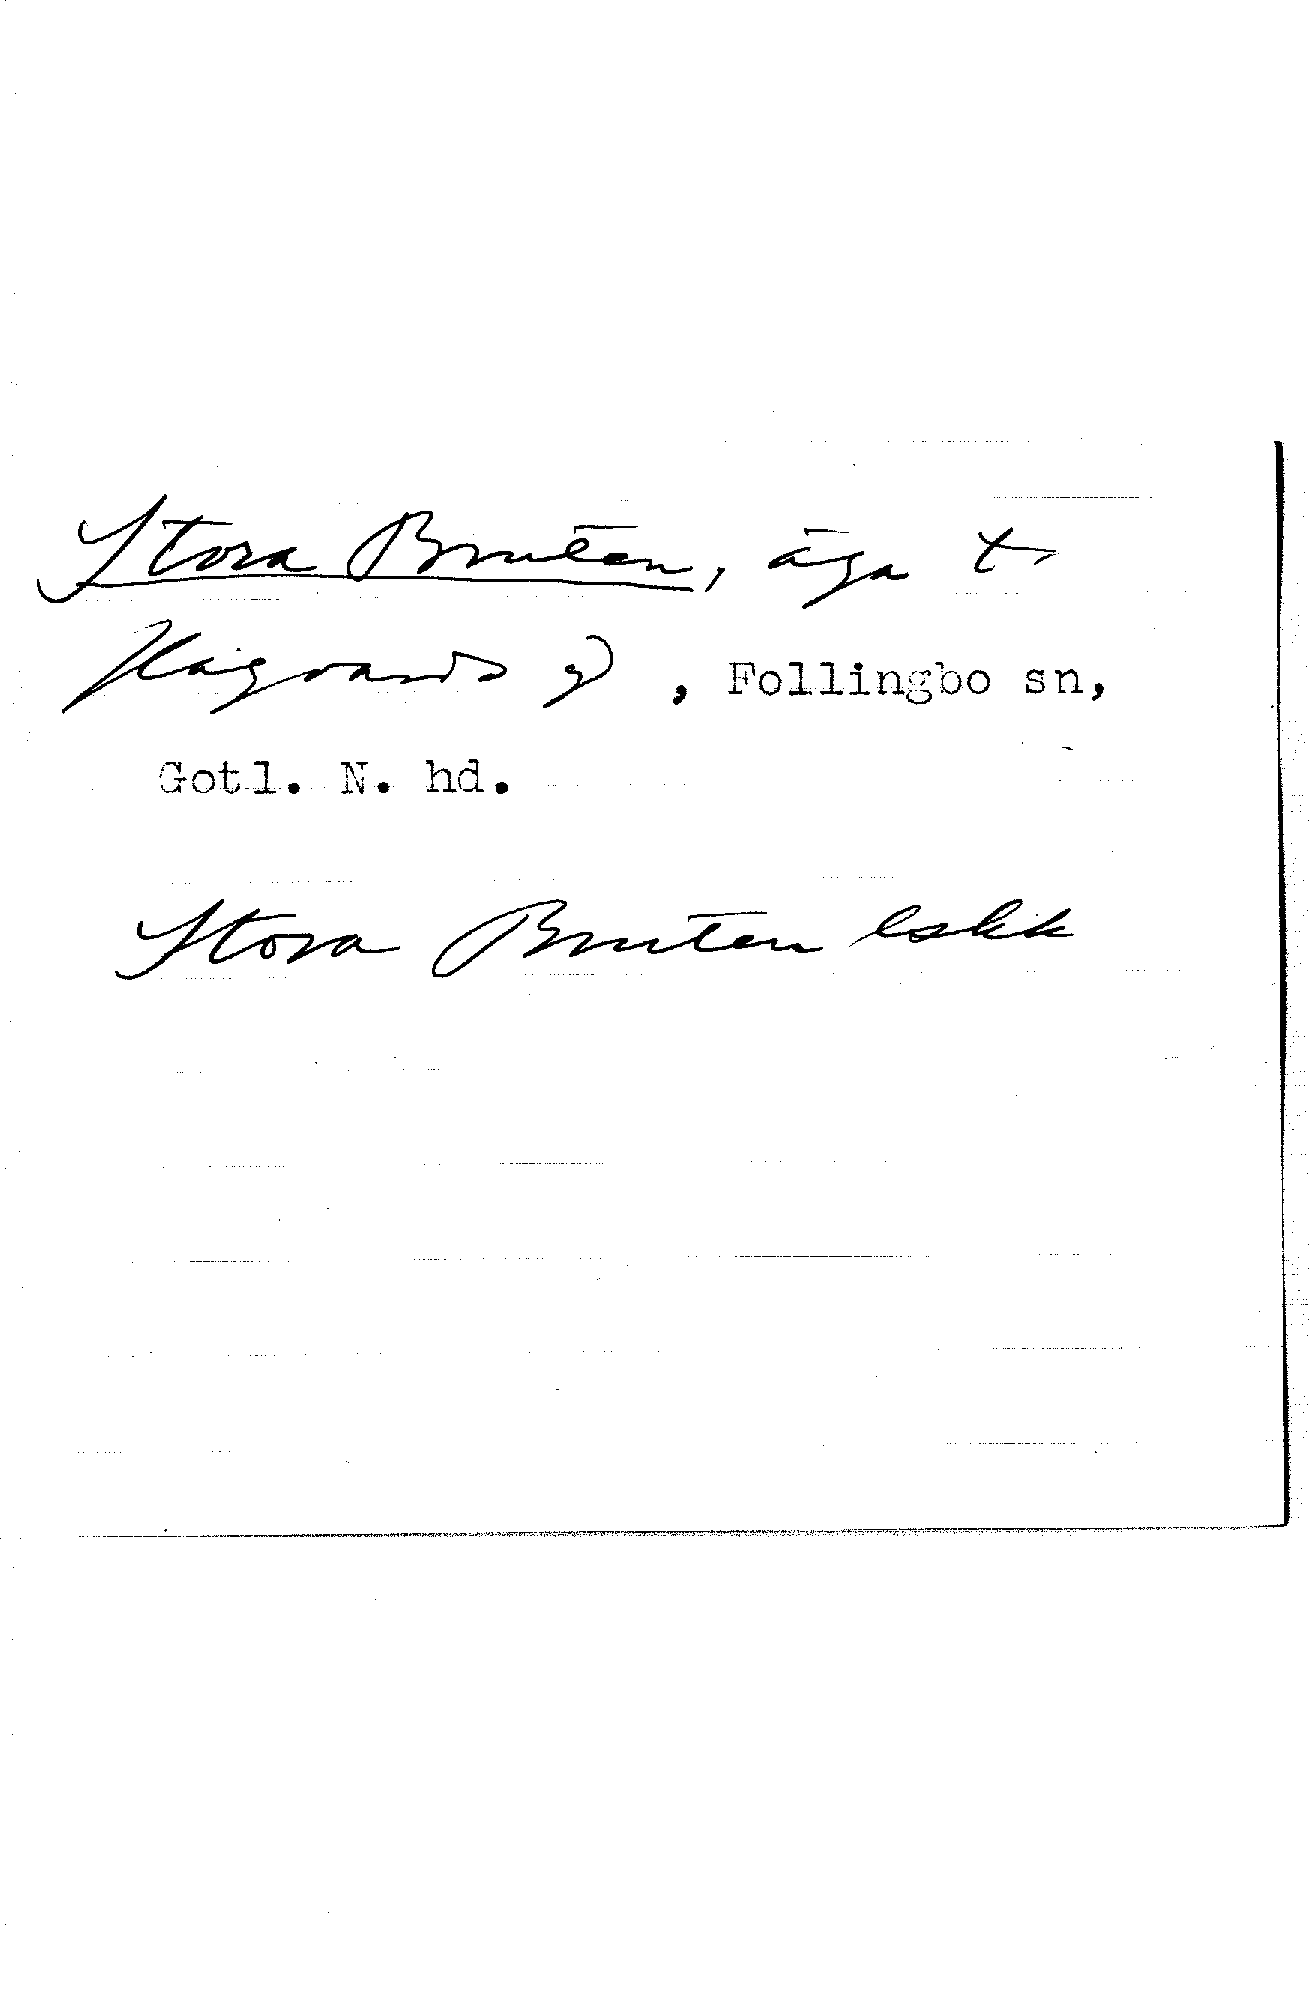 Stora Bruten, äga t
Hägvards gd, Follingbo sn,
Gotl. N. hd.
Stora Bruten